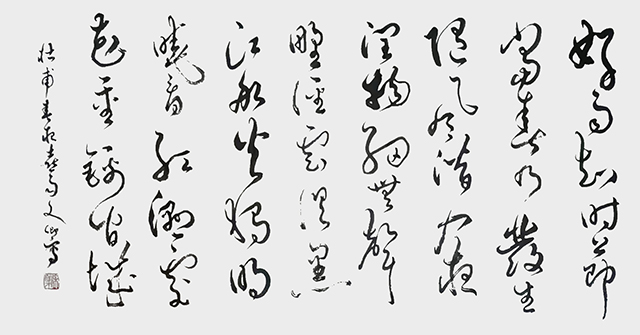 好雨知时節
當春乃發生
随風潛入夜
润物細無聲
野徑雲俱黑
江船火獨明
曉看紅濕處
花重錦官城
杜甫春夜喜雨文